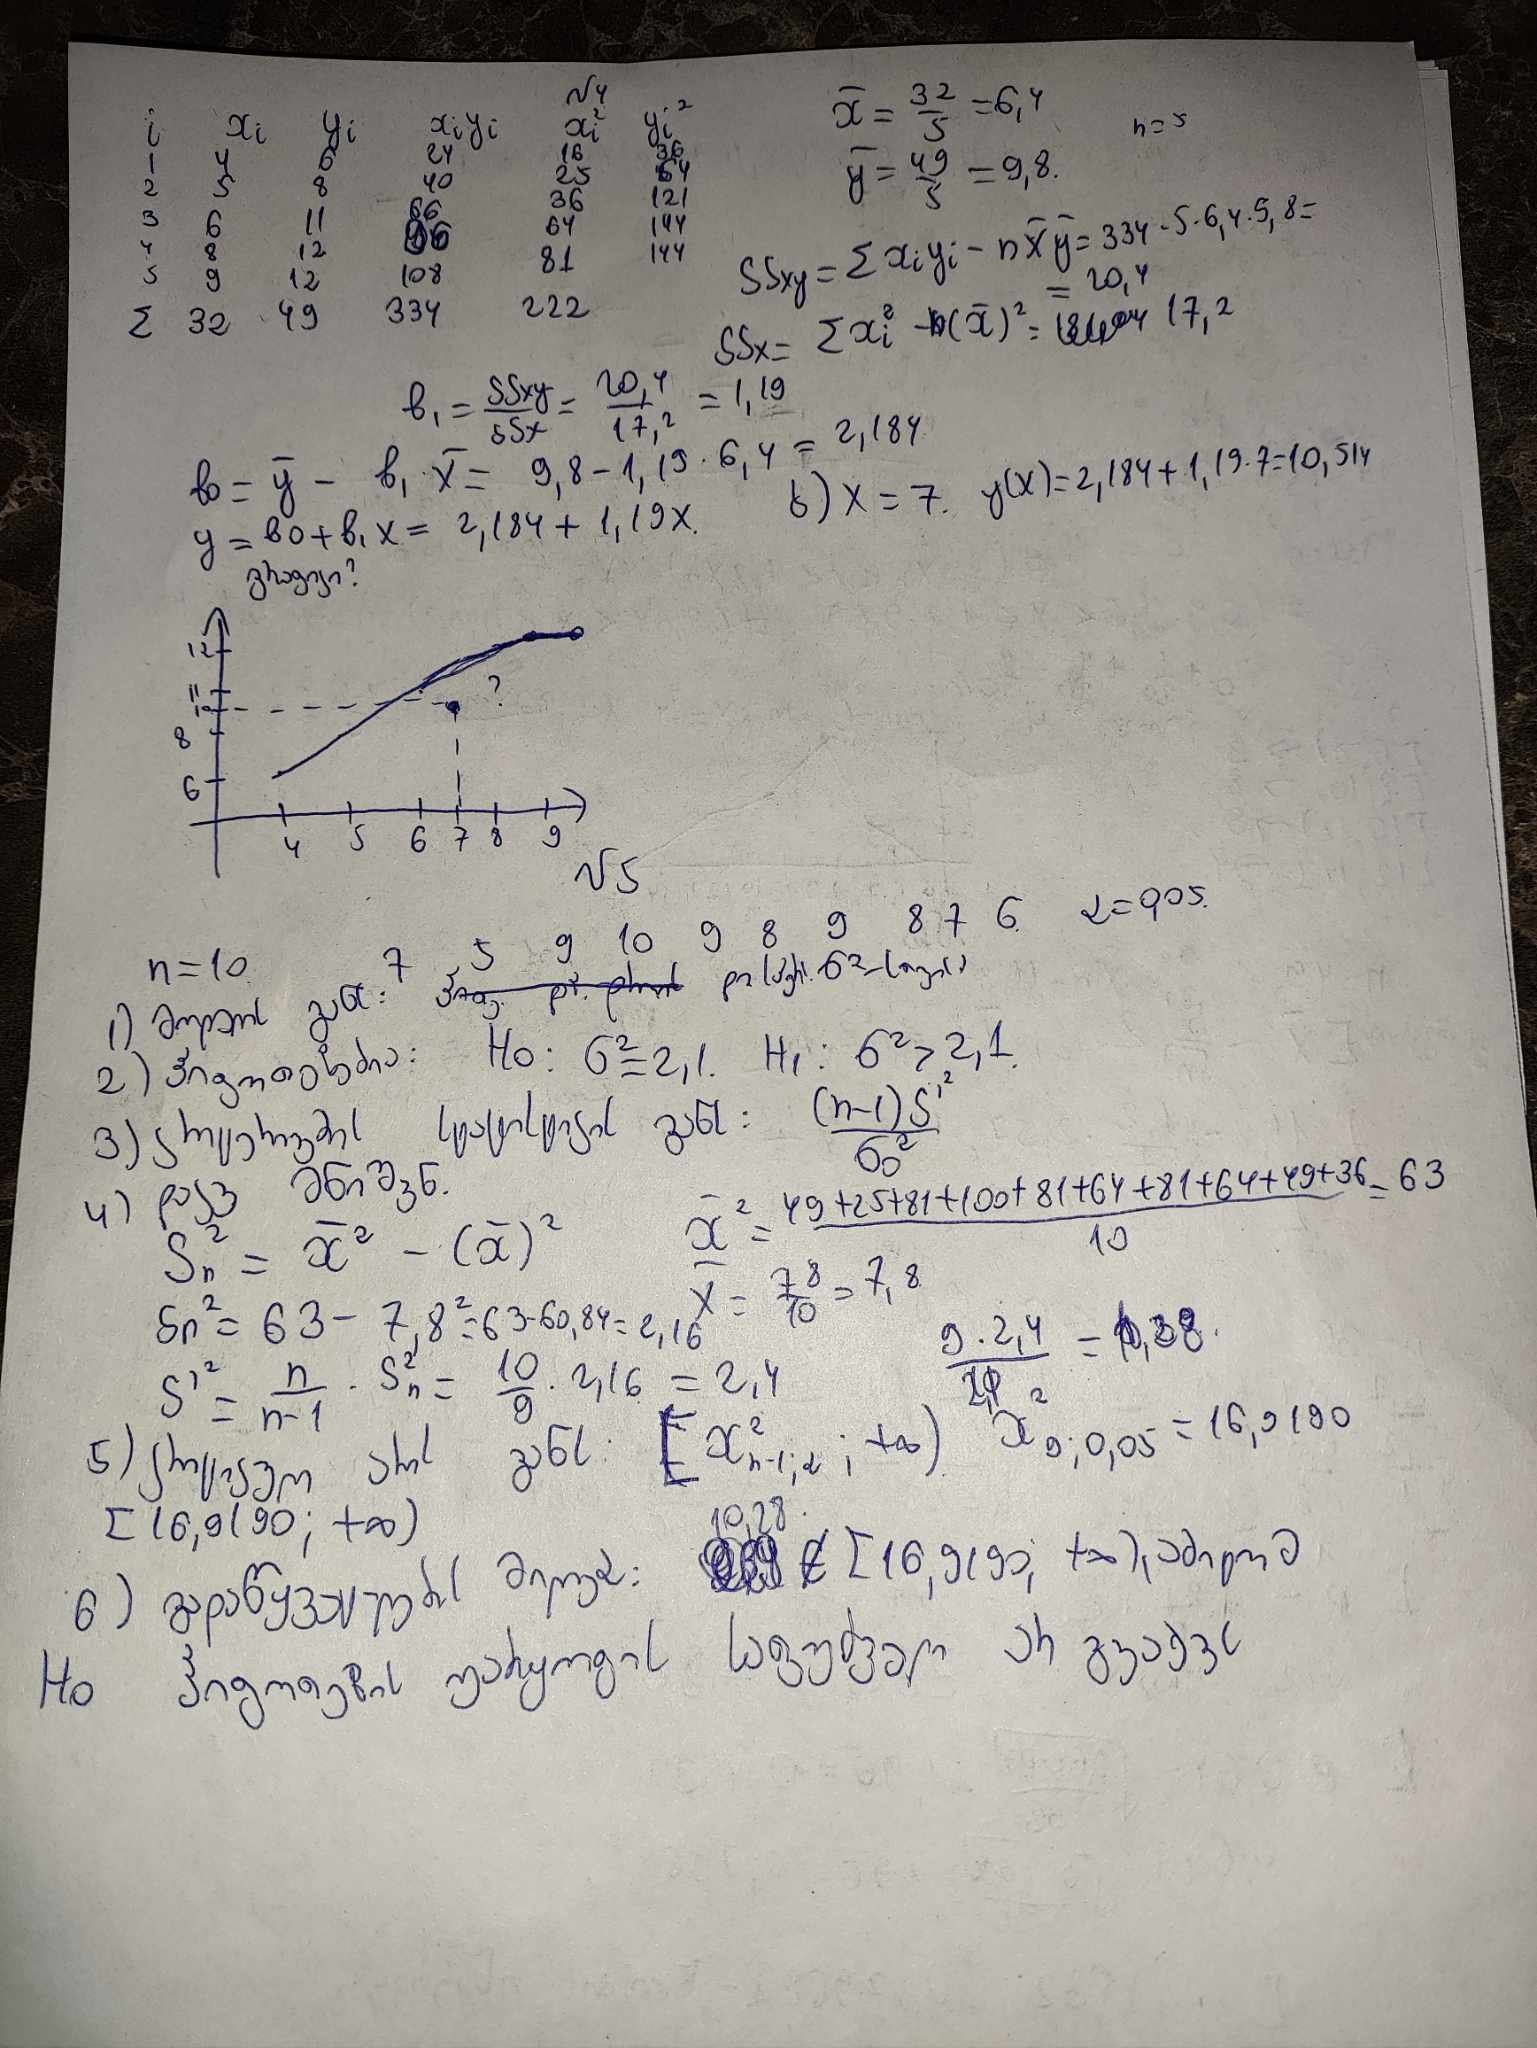 №4
i xi yi xiyi xi² yi²
1 4 6 24 16 36
2 5 8 40 25 64
3 6 11 66 36 121
4 8 12 96 64 144
5 9 12 108 81 144
Σ 32 49 334 222
x̄ = 32/5 = 6,4
n=5
ȳ = 49/5 = 9,8.
SSxy = Σ xiyi - n x̄ ȳ = 334 - 5·6,4·9,8 =
= 20,4
SSx = Σxi² - n(x̄)² = 17,2
b₁ = SSxy/SSx = 20,4/17,2 = 1,19
b₀ = ȳ - b₁ x̄ = 9,8 - 1,19·6,4 = 2,184
y = b₀ + b₁ x = 2,184 + 1,19x.
ბ) x = 7. y(x) = 2,184 + 1,19·7 = 10,514
გრაფიკი?
12
11
10
8
6
?
4 5 6 7 8 9
№5
n=10 7 5 9 10 9 8 9 8 7 6 α=0,05.
1) მოდელის განს: σ²-სთვის
2) ჰიპოთეზები: H₀: σ²=2,1. H₁: σ²>2,1.
3) კრიტერიუმის სტატისტიკის განს: (n-1)S'²/σ₀²
4) დაკვ მნიშვნ.
x̄² = 49+25+81+100+81+64+81+64+49+36/10 = 63
Sn² = x̄² - (x̄)²
x̄ = 78/10 = 7,8
Sn² = 63 - 7,8² = 63-60,84 = 2,16
S'² = n/n-1 · Sn² = 10/9 · 2,16 = 2,4
9·2,4/2,1 =
5) კრიტიკული არის განს: [x²n-1;α; +∞) x²9;0,05 = 16,9190
[16,9190; +∞)
6) გადაწყვეტილების მიღება: 10,28 ∉ [16,9190; +∞), ამიტომ
H₀ ჰიპოთეზის უარყოფის საფუძველი არ გვაქვს